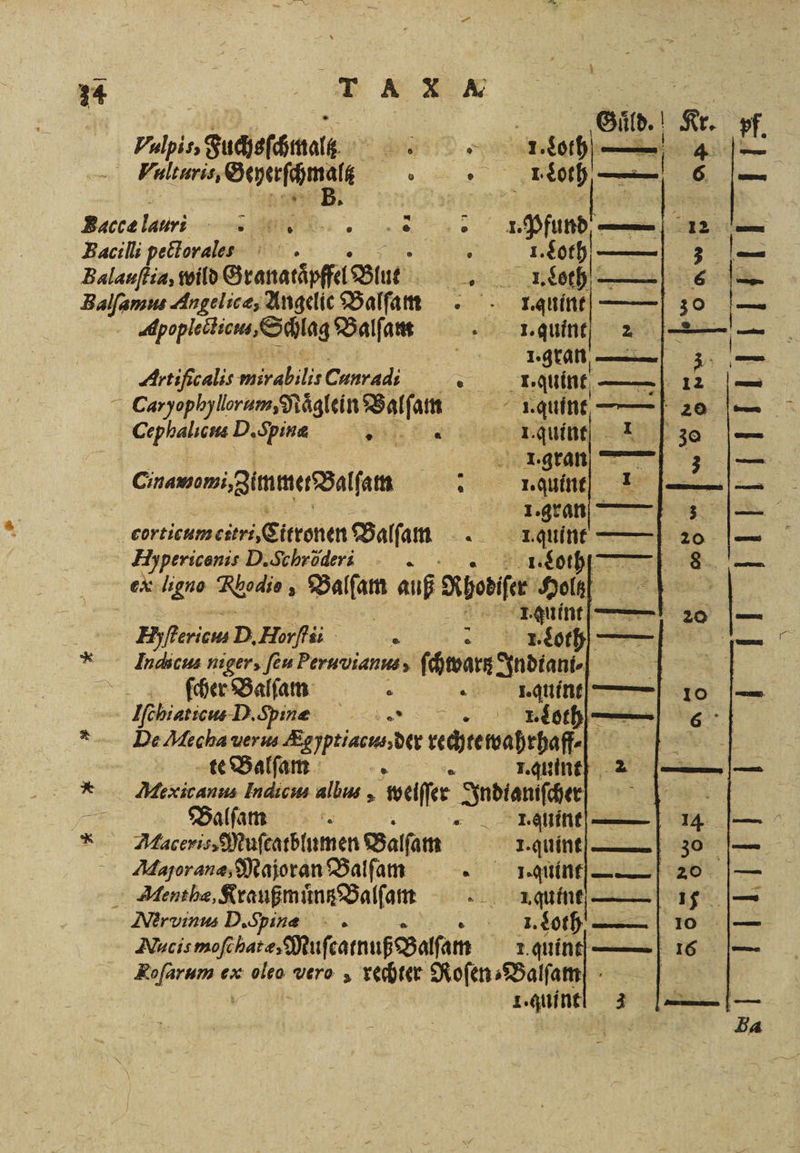 34 TAXA.
Güld. Kr. pf.
Vulpis, Fuchsschmaltz . . 1.Loth — 4 —
Vulturis, Geyerschmaltz . . 1.Loth — 6 —
B.
Baccæ lauri . . . . . 1.Pfund — 12 —
Bacilli pectorales . . . . 1.Loth — 3 —
Balaustia, wild Granatäpffel Blut . 1.Loth — 6 —
Balsamus Angelicæ, Angelic Balsam . . 1.quint — 30 —
Apoplecticus, Schlag Balsam . 1.quint 2 — —
1.gran — 3 —
Artificalis mirabilis Cunradi . 1.quint — 12 —
Caryophyllorum, Näglein Balsam 1.quint — 20 —
Cephalicus D.Spinæ . . 1.quint 1 30 —
1.gran — 3 —
Cinamomi, Zimmet Balsam . 1.quint 1 — —
1.gran — 3 —
corticum citri, Citronen Balsam . 1.quint — 20 —
Hypericonis D.Schröderi . . 1.Loth — 8 —
ex ligno Rhodio, Balsam auß Rhodiser Holtz
1.quint — 20 —
Hystericus D.Horstii . . 1.Loth — —
* Indicus niger, seu Peruvianus, schwartz Indiani-
scher Balsam . . 1.quint — 10 —
Ischiaticus D.Spinæ . . 1.Loth — 6
* De Mecha verus Ægyptiacus, der rechte wahrhaff-
te Balsam . . 1.quint 2 — —
* Mexicanus Indicus albus, weisser Indianischer
Balsam . . . 1.quint — 14 —
* Maceris, Muscatblumen Balsam 1.quint — 30 —
Majoranæ, Majoran Balsam . 1.quint — 20 —
Menthæ, Kraußmüntz Balsam . 1.quint — 15 —
Nervinus D.Spinæ . . . 1.Loth — 10 —
Nucis moschatæ, Muscatnuß Balsam 1.quint — 16 —
Rosarum ex oleo vero, rechter Rosen-Balsam
1.quint 3 — —
Ba